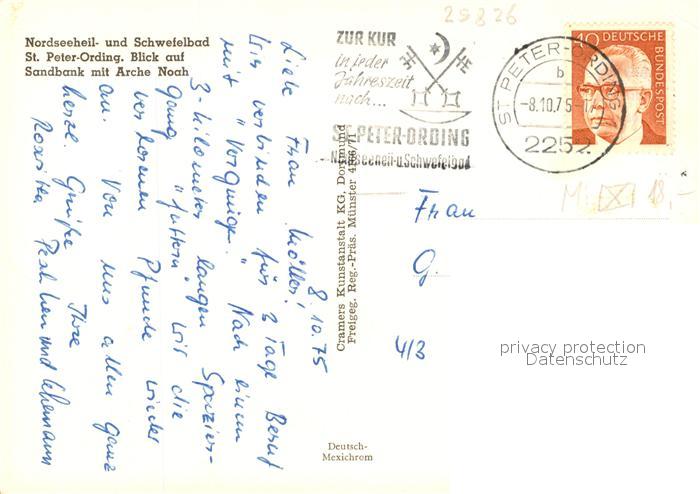 29826
Nordseeheil- und Schwefelbad
St. Peter-Ording. Blick auf
Sandbank mit Arche Noah
ZUR KUR
in jeder
Jahreszeit
nach...
ST. PETER-ORDING
Nordseeheil-u.Schwefelbad
ST. PETER-ORDING
b
-8.10.75-
2252
40 DEUTSCHE
BUNDESPOST
18,-
8.10.75
Liebe Frau Möller!
Wir verbinden für 2 Tage Beruf
mit "Vergnügen". Nach einem
3-kilometer langen Spazier-
gang "futtern" wir die
verlorenen Pfunde wieder
an. Von uns allen ganz
herzl. Grüße Ihre
und Lehmann
Cramers Kunstanstalt KG, Dortmund
Freigeg. Reg.-Präs. Münster
Frau
G.
4/3
privacy protection
Datenschutz
Deutsch-
Mexichrom